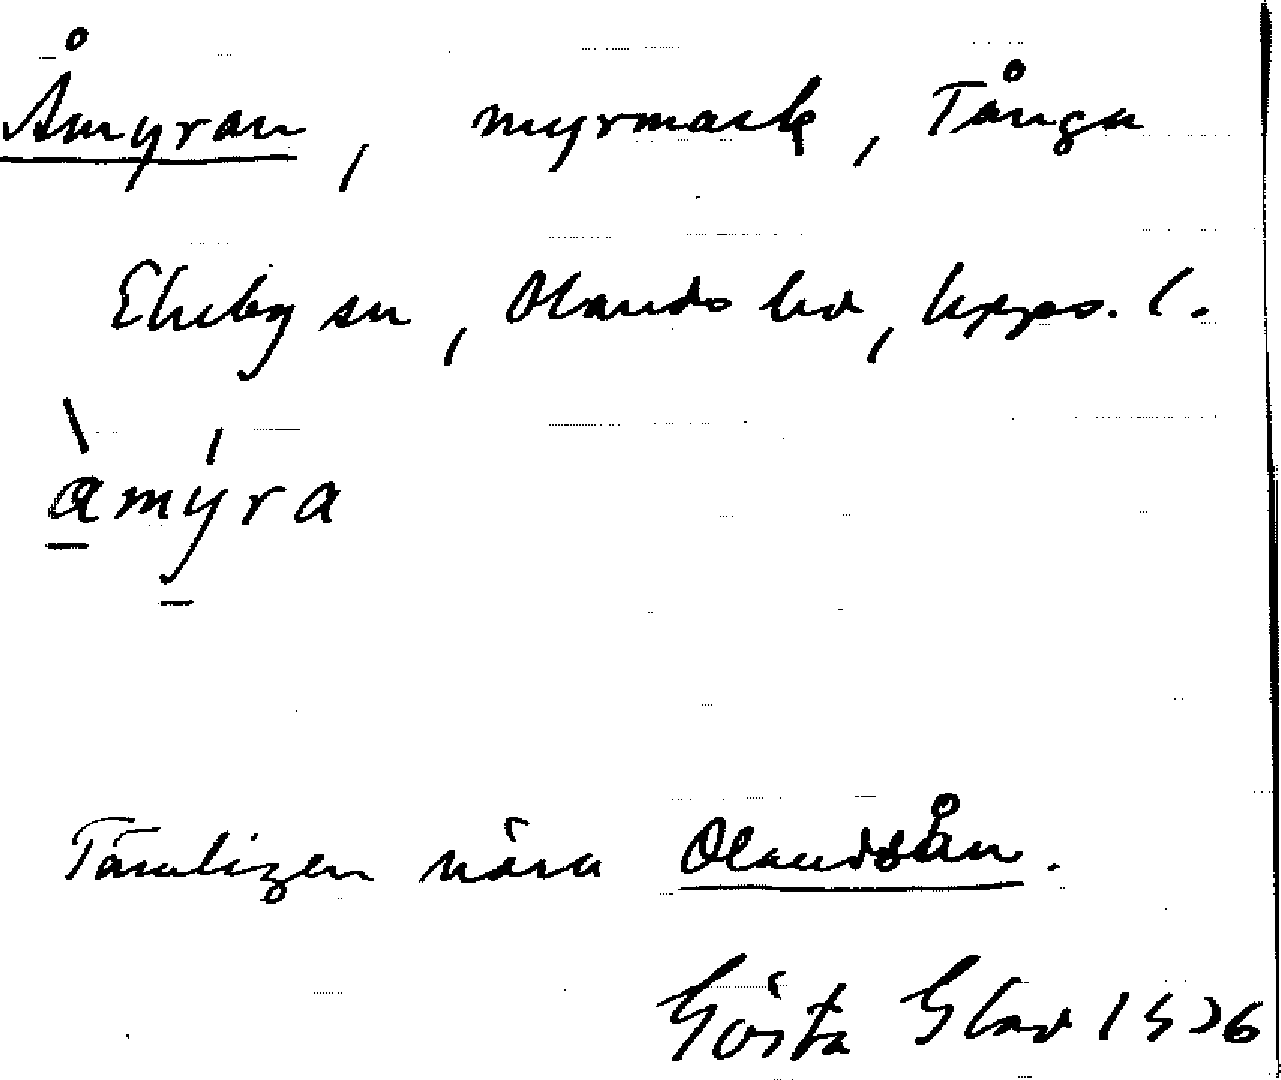 Åmyran, myrmark, Tånga
Ekeby sn, Olands hd, Upps. l.
åmýra
Tämligen nära Olandsån.
Gösta Glad 1936